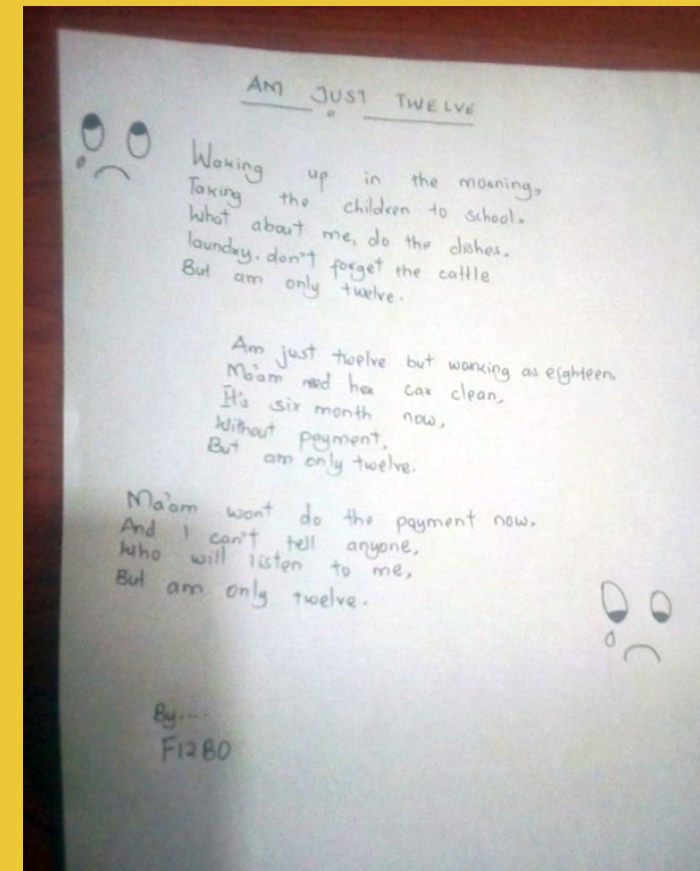 AM JUST TWELVE
Waking up in the morning,
Taking the children to school,
What about me, do the dishes,
laundry, don't forget the cattle
But am only twelve.
Am just twelve but working as eighteen,
Ma'am need her car clean,
It's six month now,
Without payment,
But am only twelve.
Ma'am wont do the payment now.
And I can't tell anyone,
Who will listen to me,
But am only twelve.
By....
F12B0